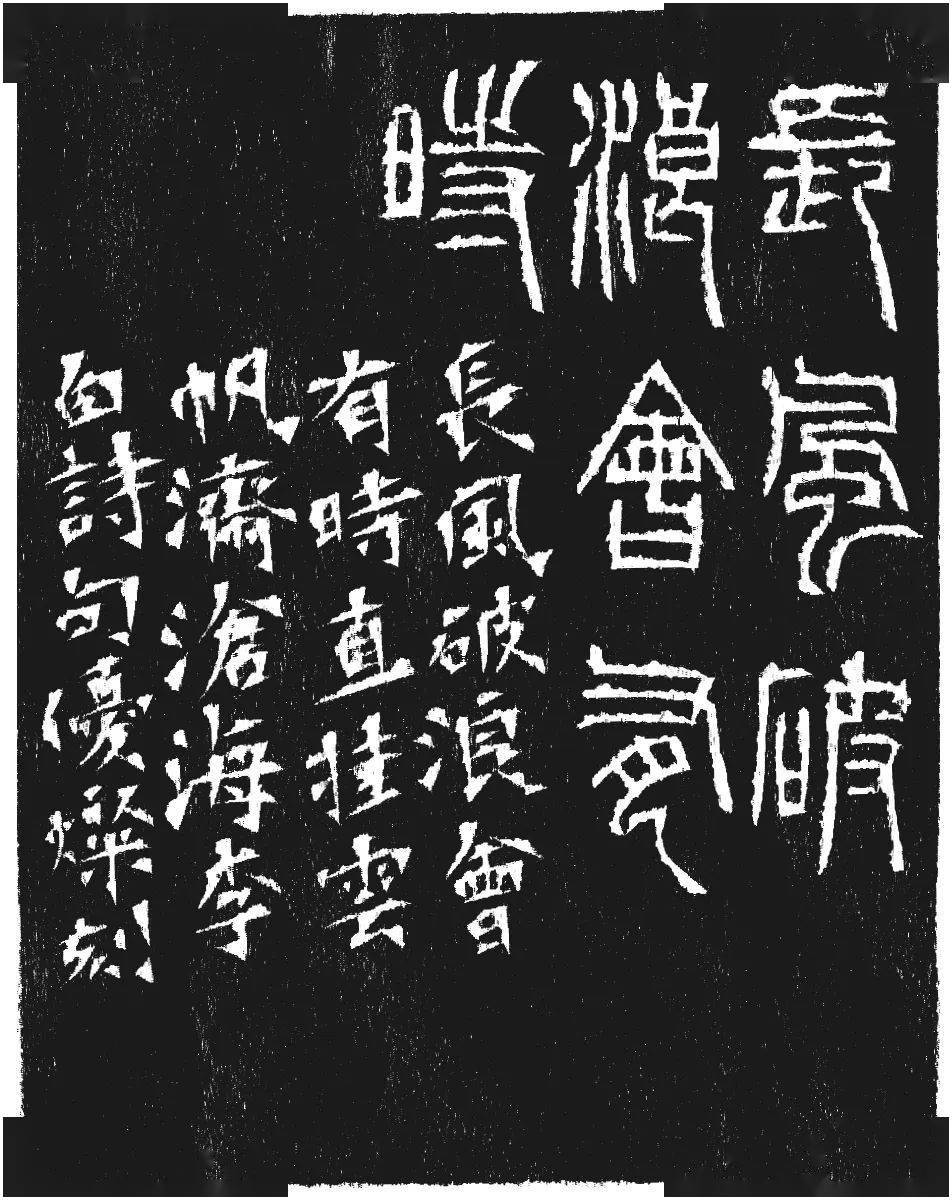 長風破
浪會有
時
長風破浪會
有時直挂雲
帆濟滄海李
白詩句優燦刻